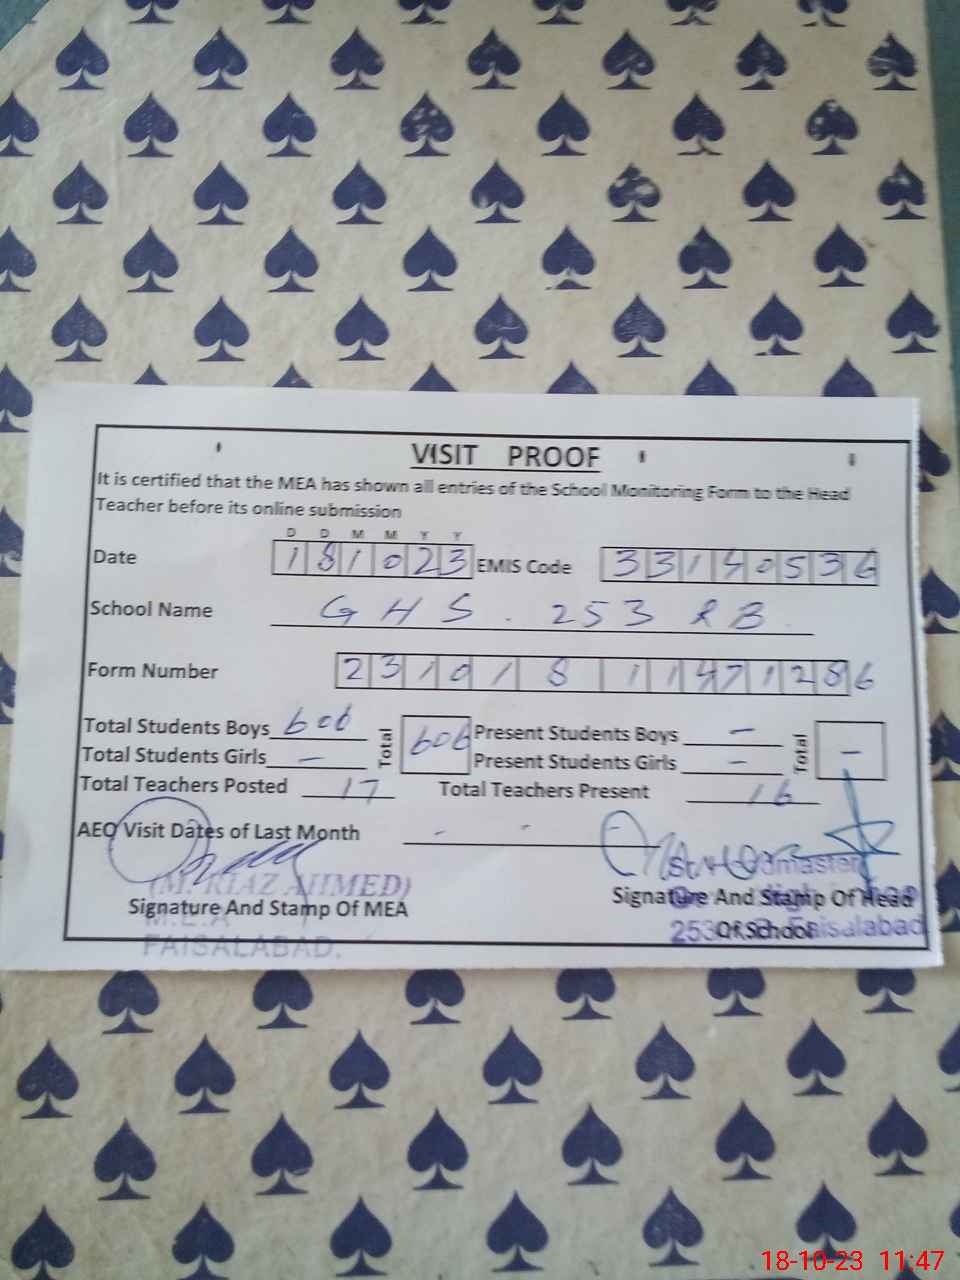 VISIT PROOF
It is certified that the MEA has shown all entries of the School Monitoring Form to the Head
Teacher before its online submission
D D M M Y Y
Date 181023 EMIS Code 33140536
School Name GHS. 253 RB
Form Number 23101811471286
Total Students Boys 606 Total 606 Present Students Boys - Total -
Total Students Girls - Present Students Girls -
Total Teachers Posted 17 Total Teachers Present 16
AEO Visit Dates of Last Month - -
(M. RIAZ AHMED)
Signature And Stamp Of MEA
M.E.A
FAISALABAD.
Signature And Stamp Of Head
Of School
253 Faisalabad
18-10-23 11:47